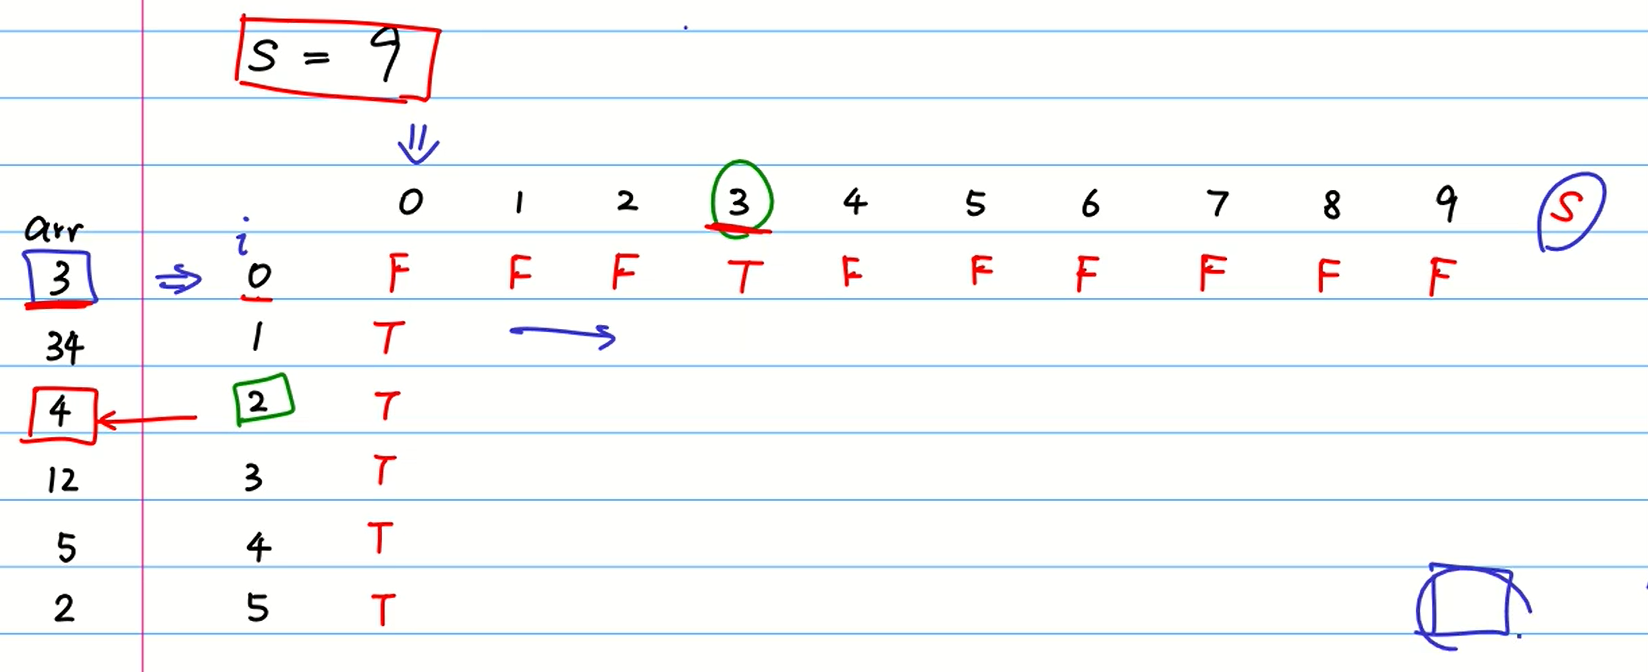 S = 9
0 1 2 3 4 5 6 7 8 9 S
arr i
3 0 F F F T F F F F F F
34 1 T
4 2 T
12 3 T
5 4 T
2 5 T